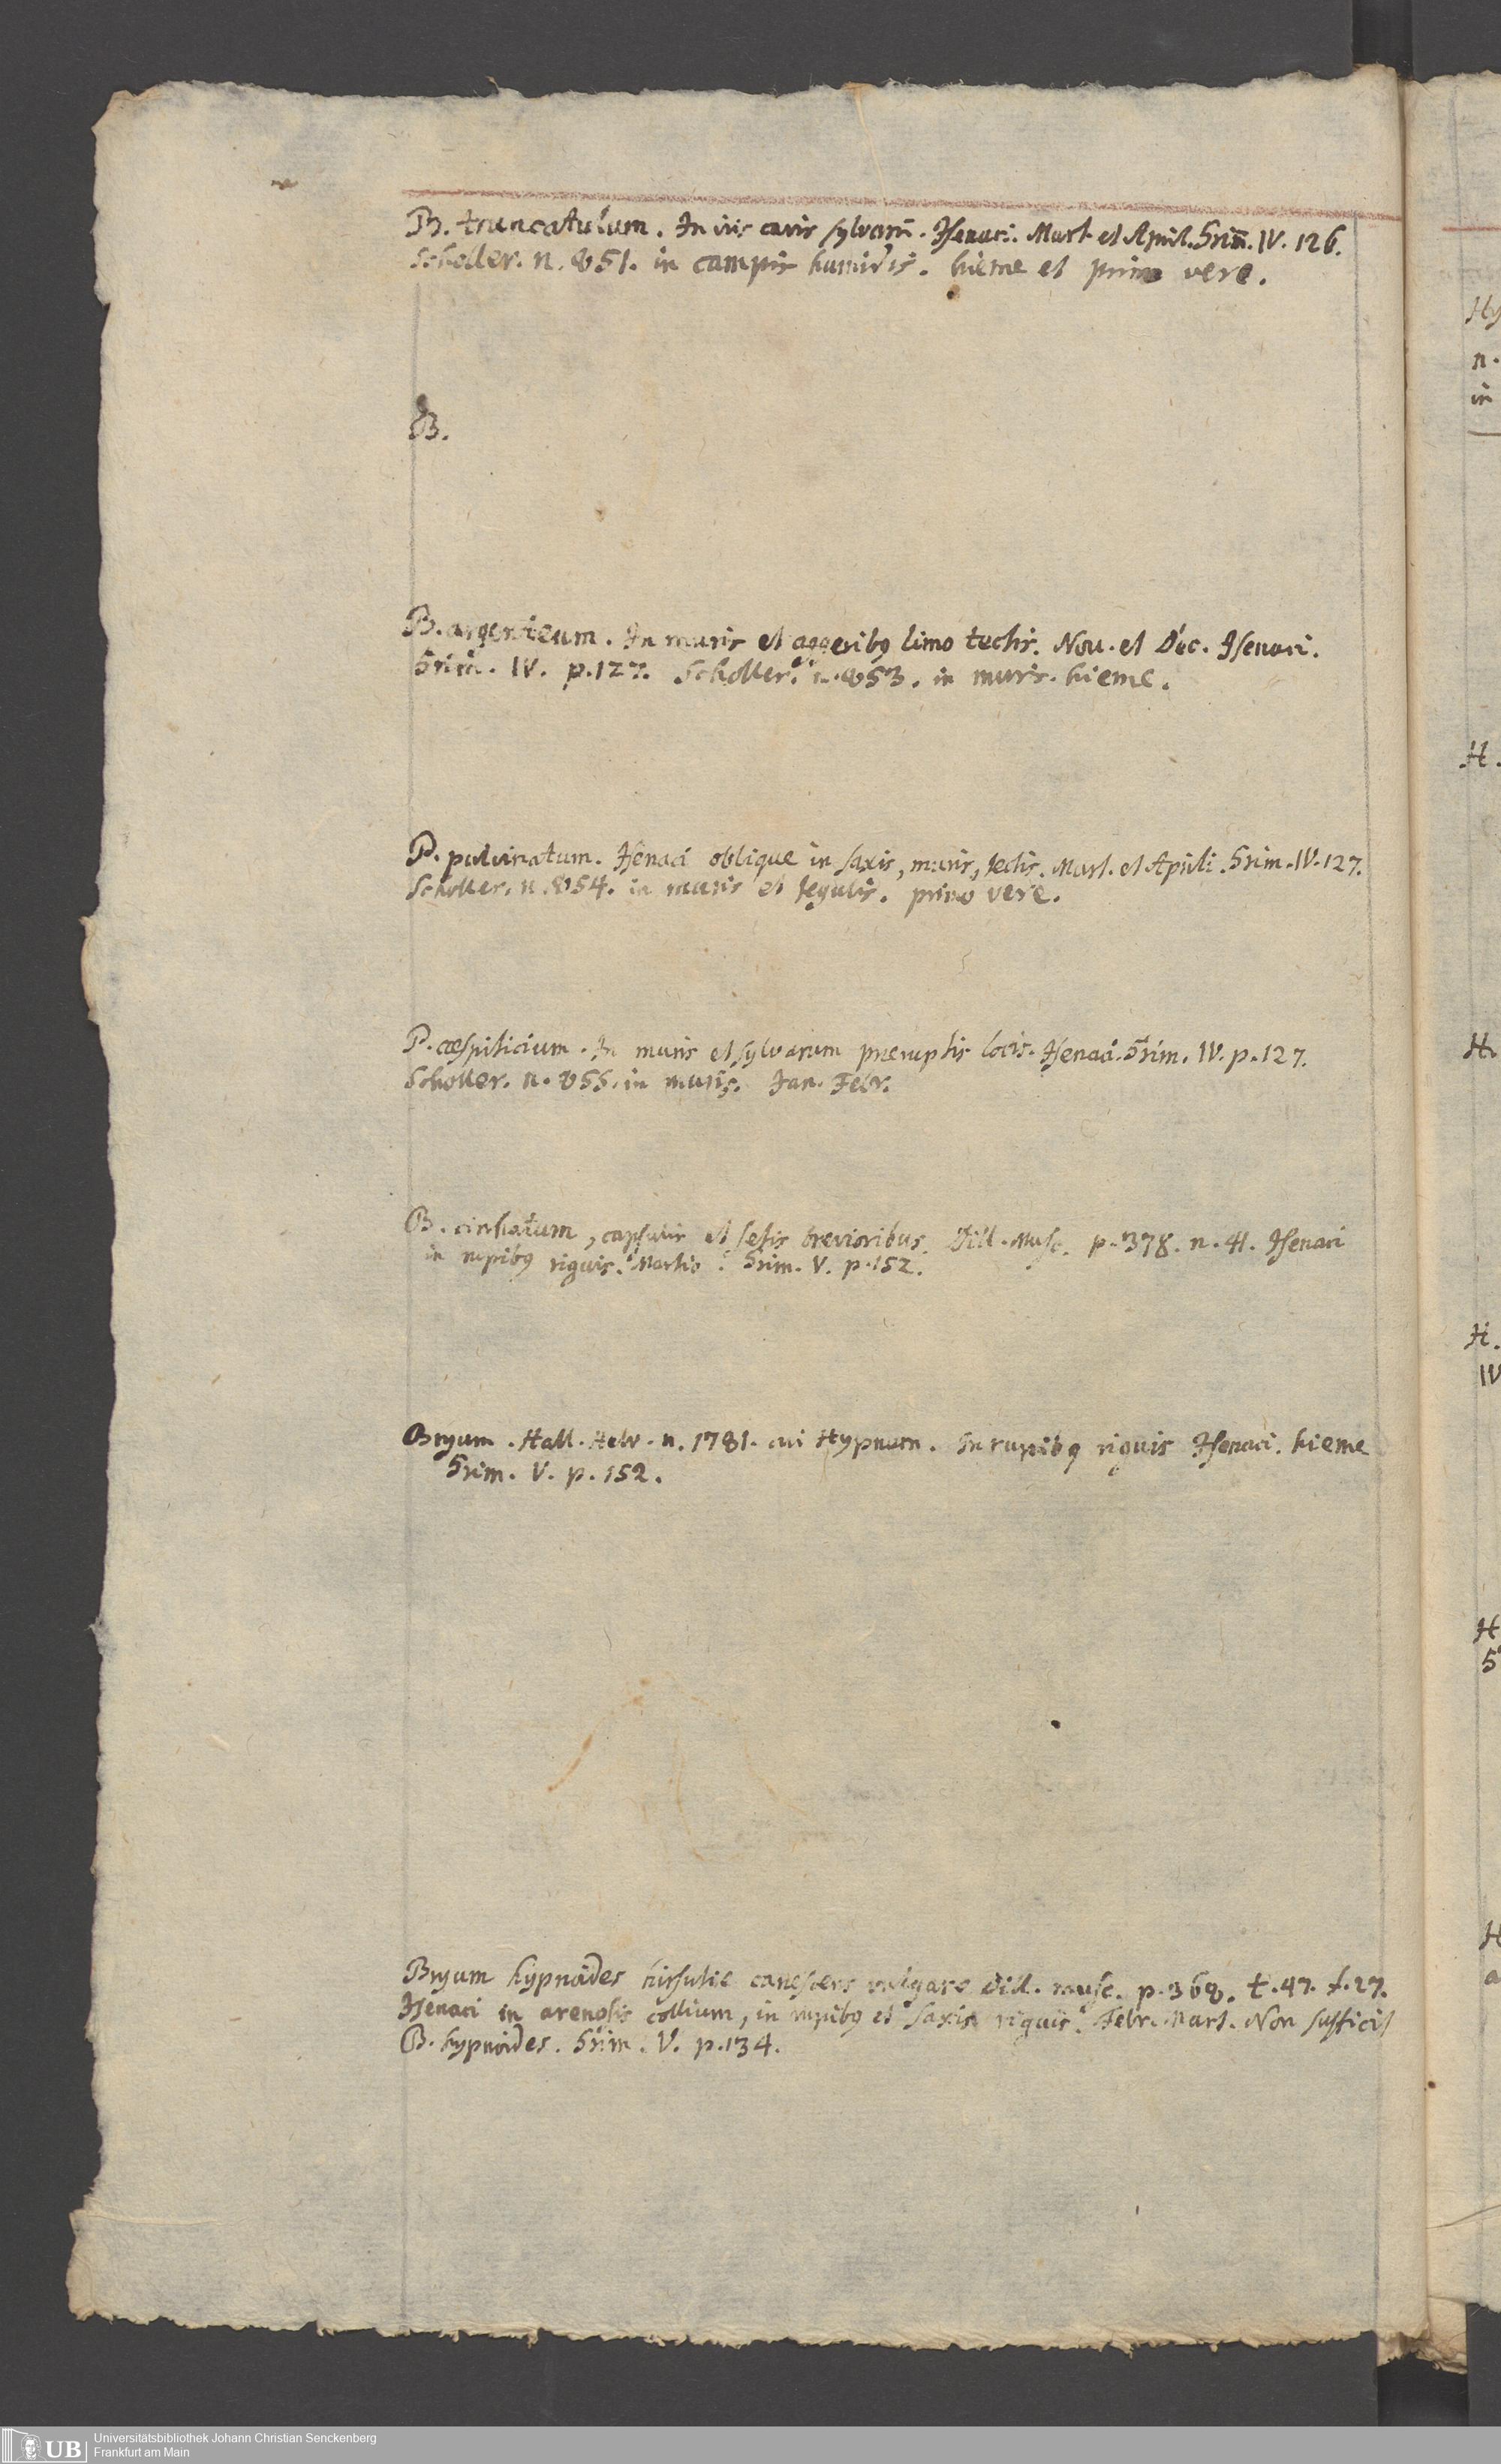 B. truncatulum. In viis cavis sylvarū. Isenaci. Mart. et April. Grim. IV. 126.
Scholler. n. 851. in campis humidis. hieme et primo vere.
B.
B. argenteum. In muris et aggeribꝫ limo tectis. Nov. et Dec. Isenaci.
Grim. IV. p. 127. Scholler. n. 853. in muris. hieme.
B. pulvinatum. Isenaci oblique in saxis, muris, tectis. Mart. et Aprili. Grim. IV. 127.
Scholler. n. 854. in muris et tegulis. primo vere.
B. cæspiticium. In muris et sylvarum præruptis locis. Isenaci. Grim. IV. p. 127.
Scholler. n. 855. in muris. Jan. Febr.
B. cirrhatum, capsulis et setis brevioribus. Dill. Musc. p. 378. n. 41. Isenaci
in rupibꝫ riguis. Martio. Grim. V. p. 152.
Bryum. Hall. Helv. n. 1781. cui Hypnum. In rupibꝫ riguis Isenaci. hieme
Grim. V. p. 152.
Bryum hypnoides hirsutie canescens vulgare Dill. musc. p. 368. t. 47. f. 27.
Isenaci in arenosis collium, in rupibꝫ et saxis riguis. Febr. Mart. Non sufficit
B. hypnoides. Grim. V. p. 134.
Hy
n.
in
H.
H.
H.
IV
H
G
H
a
UB
Universitätsbibliothek Johann Christian Senckenberg
Frankfurt am Main